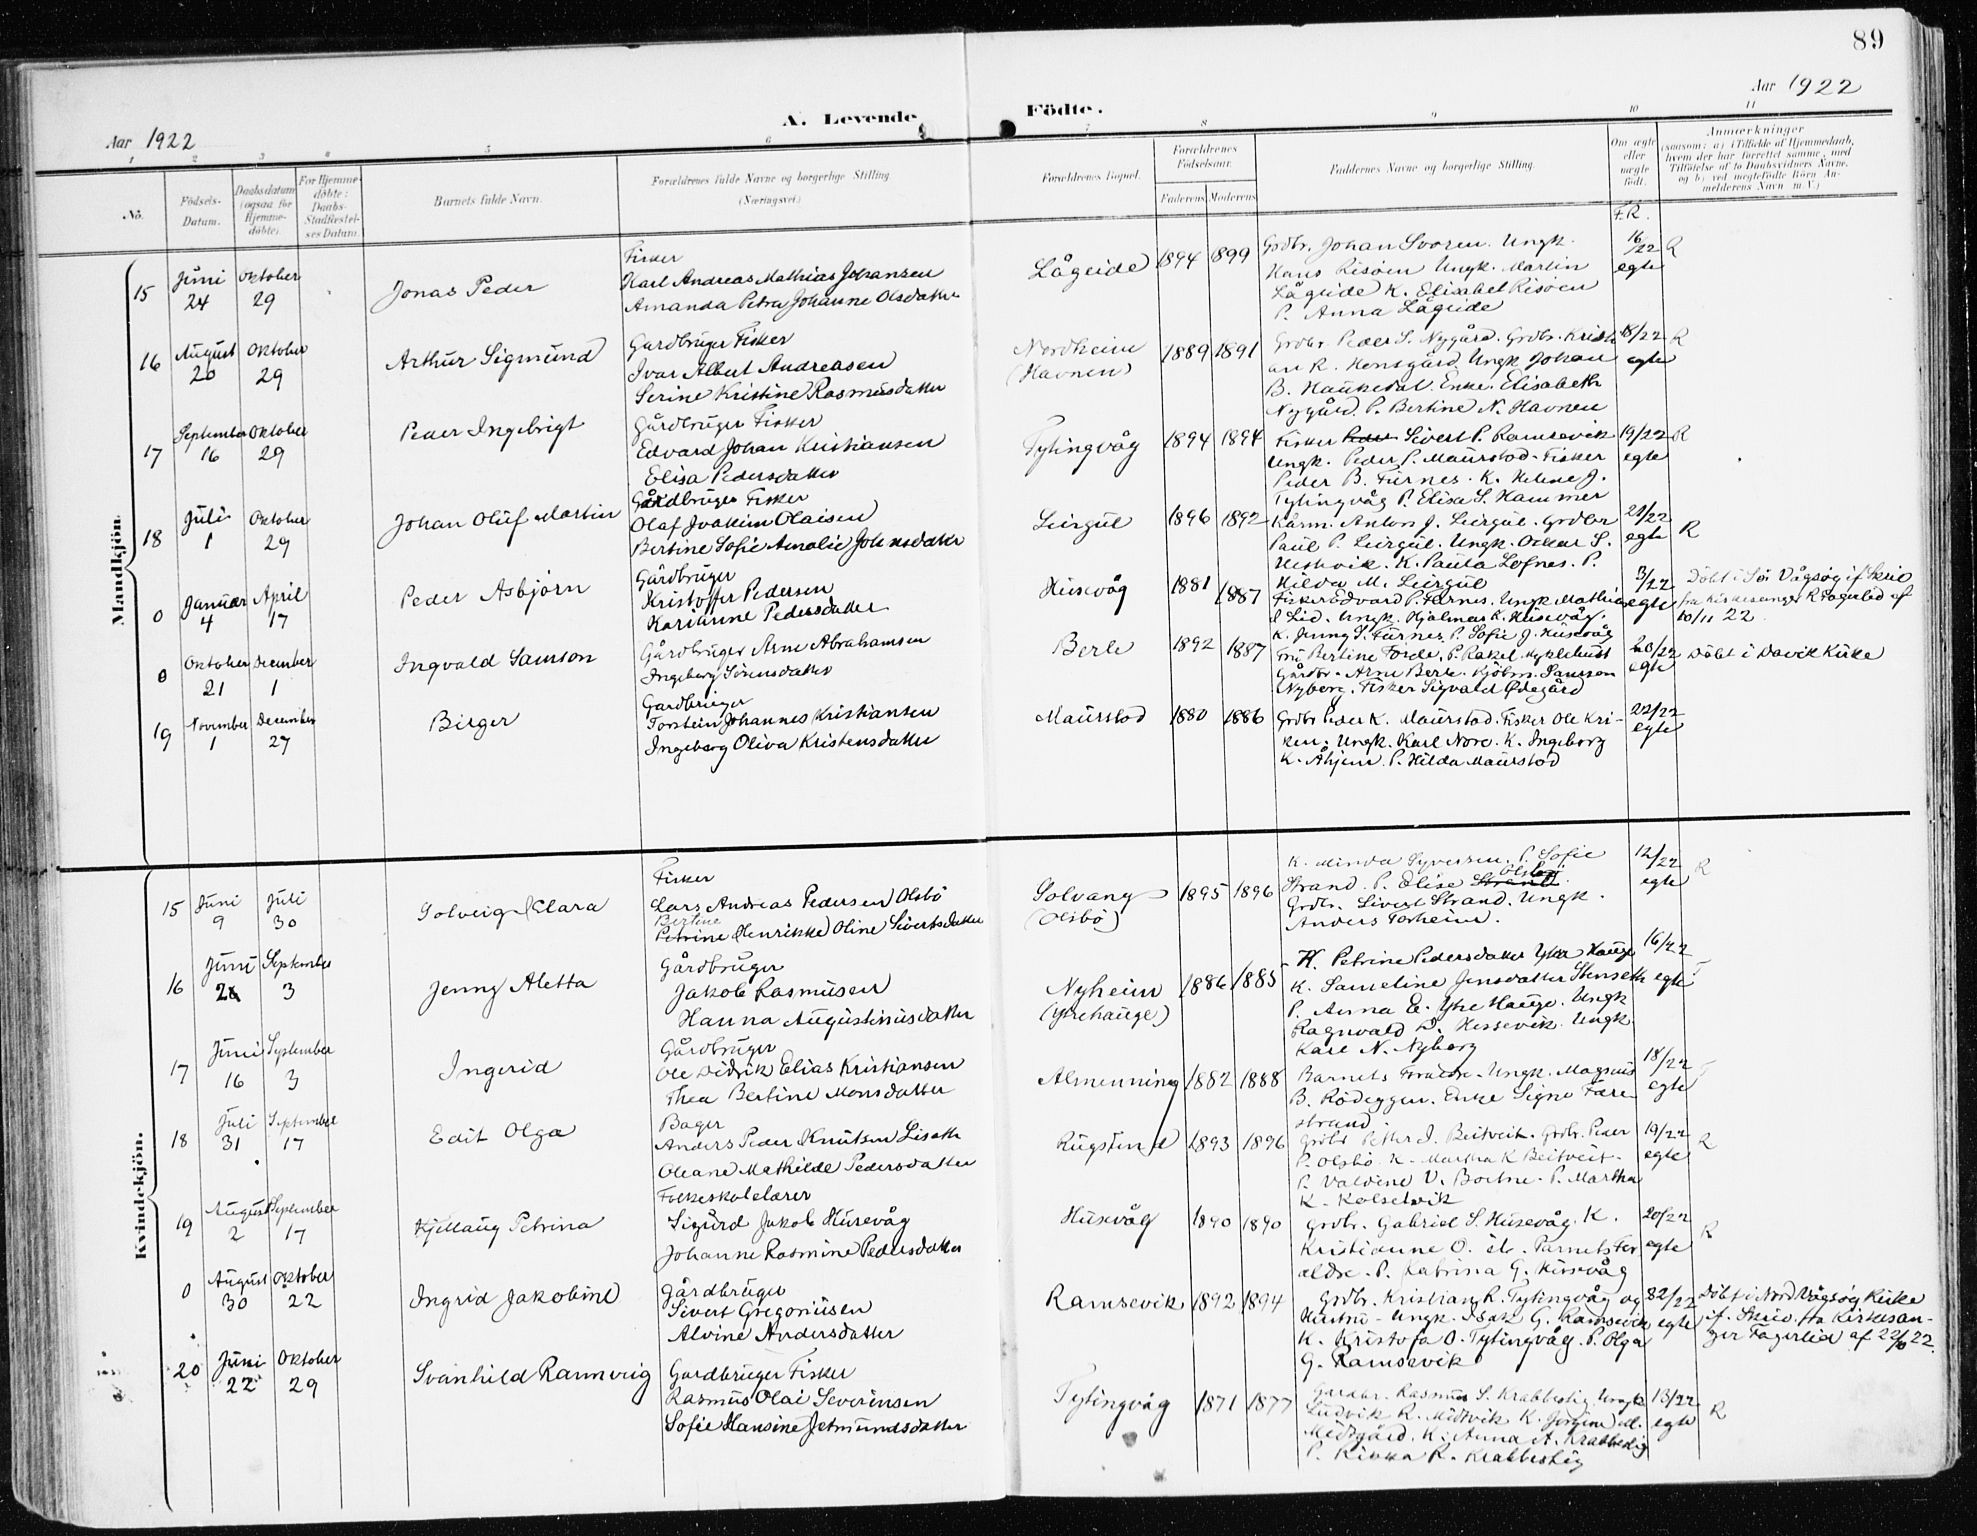 89
Aar 1922
Aar 1922
A. Levende Födte.
1 2 3 4 5 6 7 8 9 10 11
No.
Födsels-Datum.
Daabsdatum (ogsaa for Hjemme-döbte).
For Hjemme-döbte: Daabs-Stadfæstel-ses Datum.
Barnets fulde Navn.
Forældrenes fulde Navne og borgerlige Stilling
(Næringsvei.)
Forældrenes Bopæl.
Forældrenes Födselsaar.
Faderens Moderens
Faddernes Navne og borgerlige Stilling.
Om ægte eller uægte födt.
Anmærkninger
(saasom: a) i Tilfælde af Hjemmedaab, hvem der har forrettet samme, med Tilföielse af to Daabsvidners Navne, og b) ved uegtefödte Börn An-melderens Navn m. V.)
F.R.
Mandkjön.
15 Juni 24 Oktober 29 Jonas Peder
Fisker
Karl Andreas Mathias Johansen
Amanda Petra Johanne Olsdatter
Lågeide 1894 1899
Grdbr. Johan Svoren. Ungk.
Hans Risöen Ungk. Martin
Lågeide K. Elisabet Risöen
P. Anna Lågeide
16/22 egte R
16 August 20 Oktober 29 Arthur Sigmund
Gardbruger Fisker
Ivar Albert Andreasen
Serine Kristine Rasmusdatter
Nordheim (Havnen) 1889 1891
Grdbr. Peder S. Nygård. Grdbr. Kristi
an R. Hensgård Ungk Johan
B. Haukedal. Enke. Elisabeth
Nygård. P. Bertine N. Havnen
18/22 egte R
17 September 16 Oktober 29 Peder Ingebrigt
Gårdbruger Fisker
Edvard Johan Kristiansen
Elisa Pedersdatter
Tytingvåg 1894 1894
Fisker Peder Sivert P. Ramsevik
Ungk. Peder P. Maurstad. Fisker
Peder B. Furnes. K. Helene J.
Tytingvåg P. Elisa S. Hammer
19/22 egte R
18 Juli 1 Oktober 29 Johan Oluf Martin
Gårdbruger Fisker
Olaf Joakim Olaisen
Bertine Sofie Amalie Johnsdatter
Leirgul 1896 1892
Kårm. Anton J. Leirgul. Grdbr
Paul P. Leirgul. Ungk. Oskar S.
Nesvik. K. Paula Lofnes. P.
Hilda M. Leirgul
21/22 egte R
0 Januar 4 April 17 Peder Asbjörn
Gårdbruger
Kristoffer Pedersen
Karianne Pedersdatter
Husevåg 1881 1887
Fisker Edvard P. Furnes. Ungk Mathias
S Lid. Ungk. Hjalmar K. Husevåg.
K. Jenny S. Furnes P. Sofie J. Husevåg
3/22 egte
Döbt i Sör Vågsöy if Skriv
fra Kirkesanger R Fagerlid af
10/11 22.
0 Oktober 21 December 1 Ingvald Samson
Gårdbruger Arne Abrahamsen
Ingeborg Sörensdatter
Berle 1892 1887
Fru Bertine Förde. P. Rakel Myklebust
Gårdbr. Arne Berle. Kjöbm. Samson
Nyberg. Fisker Sigvald Ødegård
20/22 egte Döbt i Davik Kirke
19 November 1 December 27 Birger
Gardbruger
Torstein Johannes Kristiansen
Ingeborg Oliva Kristensdatter
Maurstad 1880 1886
Grdbr Peder K. Maurstad. Fisker Ole Kri-
ken. Ungk. Karl Nore. K. Ingeborg
K. Åhjem. P. Hilda Maurstad
22/22 egte
Kvindekjön.
15 Juni 9 Juli 30 Solveig Klara
Fisker
Lars Andreas Pedersen Olsbö
Bertine
Petrine Henrikke Oline Sivertsdatter
Solvang (Olsbö) 1895 1896
K. Minda Syversen. P. Sofie
Strand. P. Elise Strand Olsböj
Grdbr. Sivert Strand. Ungk.
Anders Torheim.
12/22 egte R
16 Juni 2 September 3 Jenny Aletta
Gårdbruger
Jakob Rasmusen
Hanna Augustinusdatter
Nyheim (Ytrehauge) 1886 1885
K. Petrine Pedersdatter Ytre Hauge
K. Sameline Jensdatter Stenseth
P. Anna E. Ytre Hauge. Ungk
Ragnvald D. Hessevik. Ungk.
Karl N. Nyborg
16/22 egte T
17 Juni 16 September 3 Ingerid
Gårdbruger
Ole Didrik Elias Kristiansen
Thea Bertine Monsdatter
Almenning 1882 1888
Barnets Forældre. Ungk. Magnus
B. Rödeggen. Enke Signe Fære
strand.
18/22 egte T
18 Juli 31 September 17 Edit Olga
Bager
Anders Peder Knutsen Liseth
Oleane Mathilde Pedersdatter
Rugsund 1893 1896
Grdbr Petter I. Beitveit. Grdbr. Peder
P. Olsbö K. Martha K Beitveit.
P. Valdine V. Bortne. P. Martha
K. Kolsetvik
19/22 egte R
19 August 2 September 17 Kjellaug Petrina
Folkeskolelærer
Sigurd Jakob Husevåg
Johanne Rasmine Pedersdatter
Husevåg 1890 1890
Grdbr. Gabriel S. Husevåg. K.
Kristianne O. st. Barnets For
ældre. P. Katrina G. Husevåg
20/22 egte R
0 August 30 Oktober 22 Ingrid Jakobine
Gårdbruger
Sivert Gregoriusen
Alvine Andersdatter
Ramsevik 1892 1894
Grdbr. Kristian R. Tytingvåg og
Hustru. Ungk. Isak G. Ramsevik
K. Kristofa O. Tytingvåg. P. Olga
G. Ramsevik
32/22 egte
Döbt i Nord Vågsöy Kirke
if. Skriv. fra Kirkesan-
ger Fagerlid af 22/10 22.
20 Juni 22 Oktober 29 Svanhild Rannveig
Gardbruger Fisker
Rasmus Olai Severinsen
Sofie Hansine Jetmundsdatter
Tytingvåg 1871 1877
Gardbr. Rasmus S. Krabbestig. Ungk
Ludvik R. Midtvik K. Jörgine M.
Midtgård. K. Anna A. Krabbestig
P. Rikka R. Krabbestig
13/22 egte R